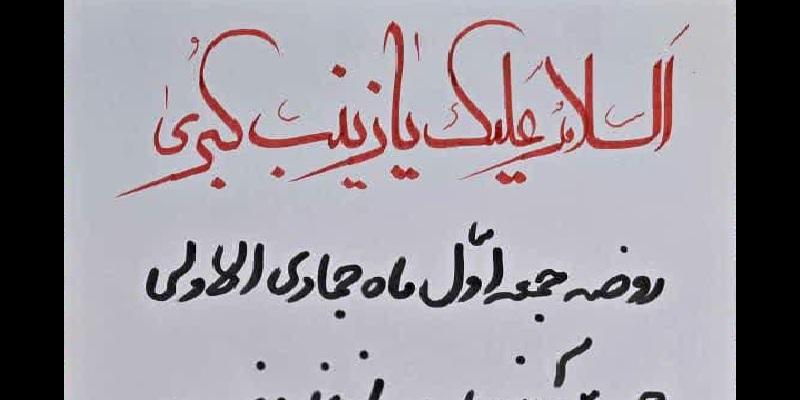 السلام علیک یا زینب کبریٰ
روضه جمعه اوّل ماه جمادی الاولی